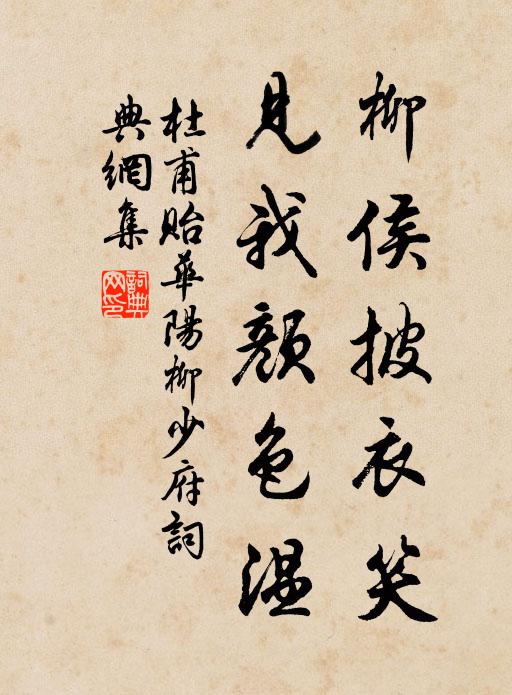 柳侯披衣笑
見我顏色溫
杜甫貽華陽柳少府詞
典網集
詞典網印